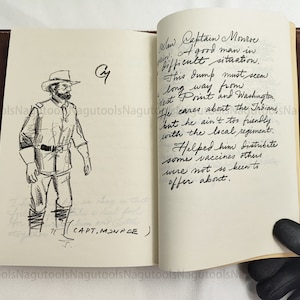 CM
(CAPT. MONROE)
Saw Captain Monroe
A good man in
difficult situation.
This dump must seem
long way from
West Point and Washington.
He cares about the Indians,
but he ain't too friendly
with the local regiment.
Helped him distribute
some vaccines others
were not so keen to
offer about.
NagutoolsNagutoolsNagutools